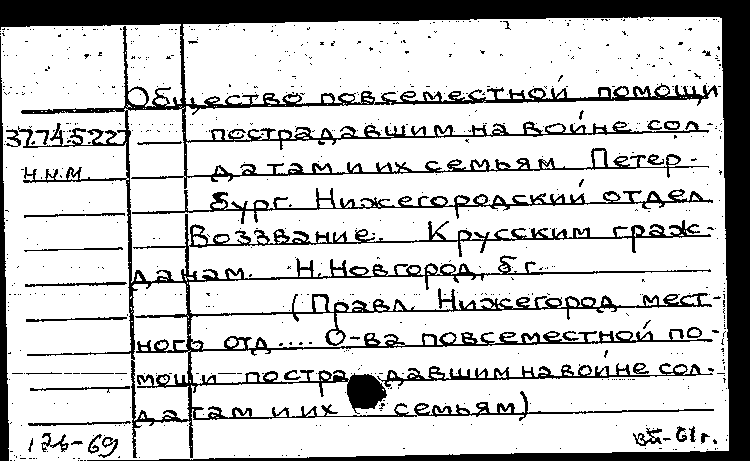 Общество повсеместной помощи
37.74.5227 пострадавшим на войне сол-
Н.Н.М. датам и их семьям. Петер-
бург. Нижегородский отдел
Воззвание. К русским граж-
данам. Н. Новгород, б. г.
(Правл. Нижегород. мест-
ного отд.... О-ва повсеместной по-
мощи пострадавшим на войне сол-
датам и их семьям)